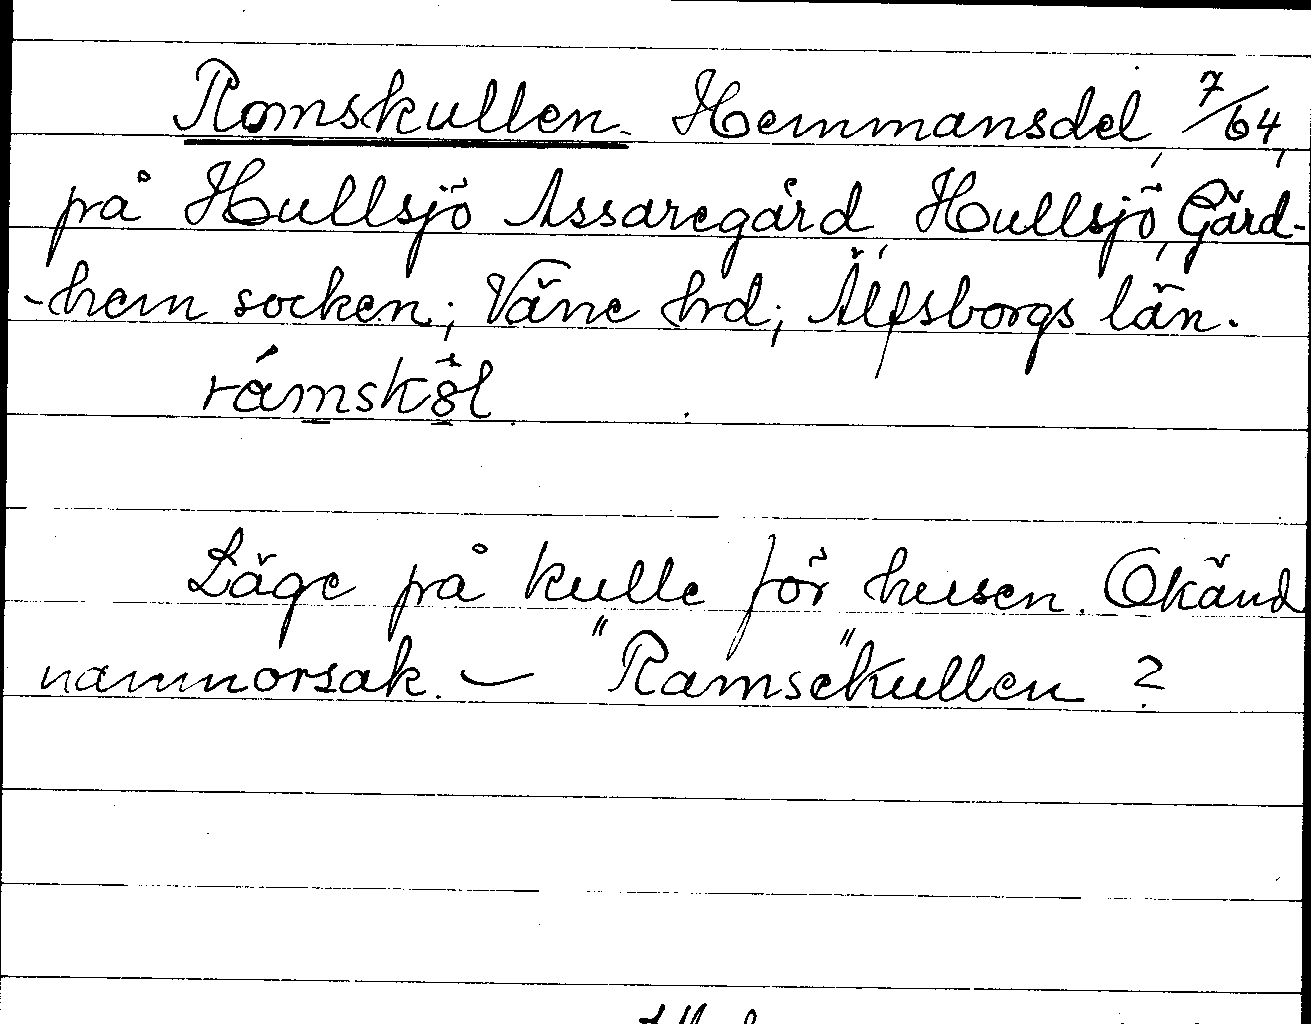 Romskullen. Hemmansdel, 7/64,
på Hullsjö Assaregård, Hullsjö, Gärd-
-hem socken; Väne hrd; Älfsborgs län.
rámskö̀l
Läge på kulle för husen. Okänd
namnorsak. — "Ramse"kullen ?